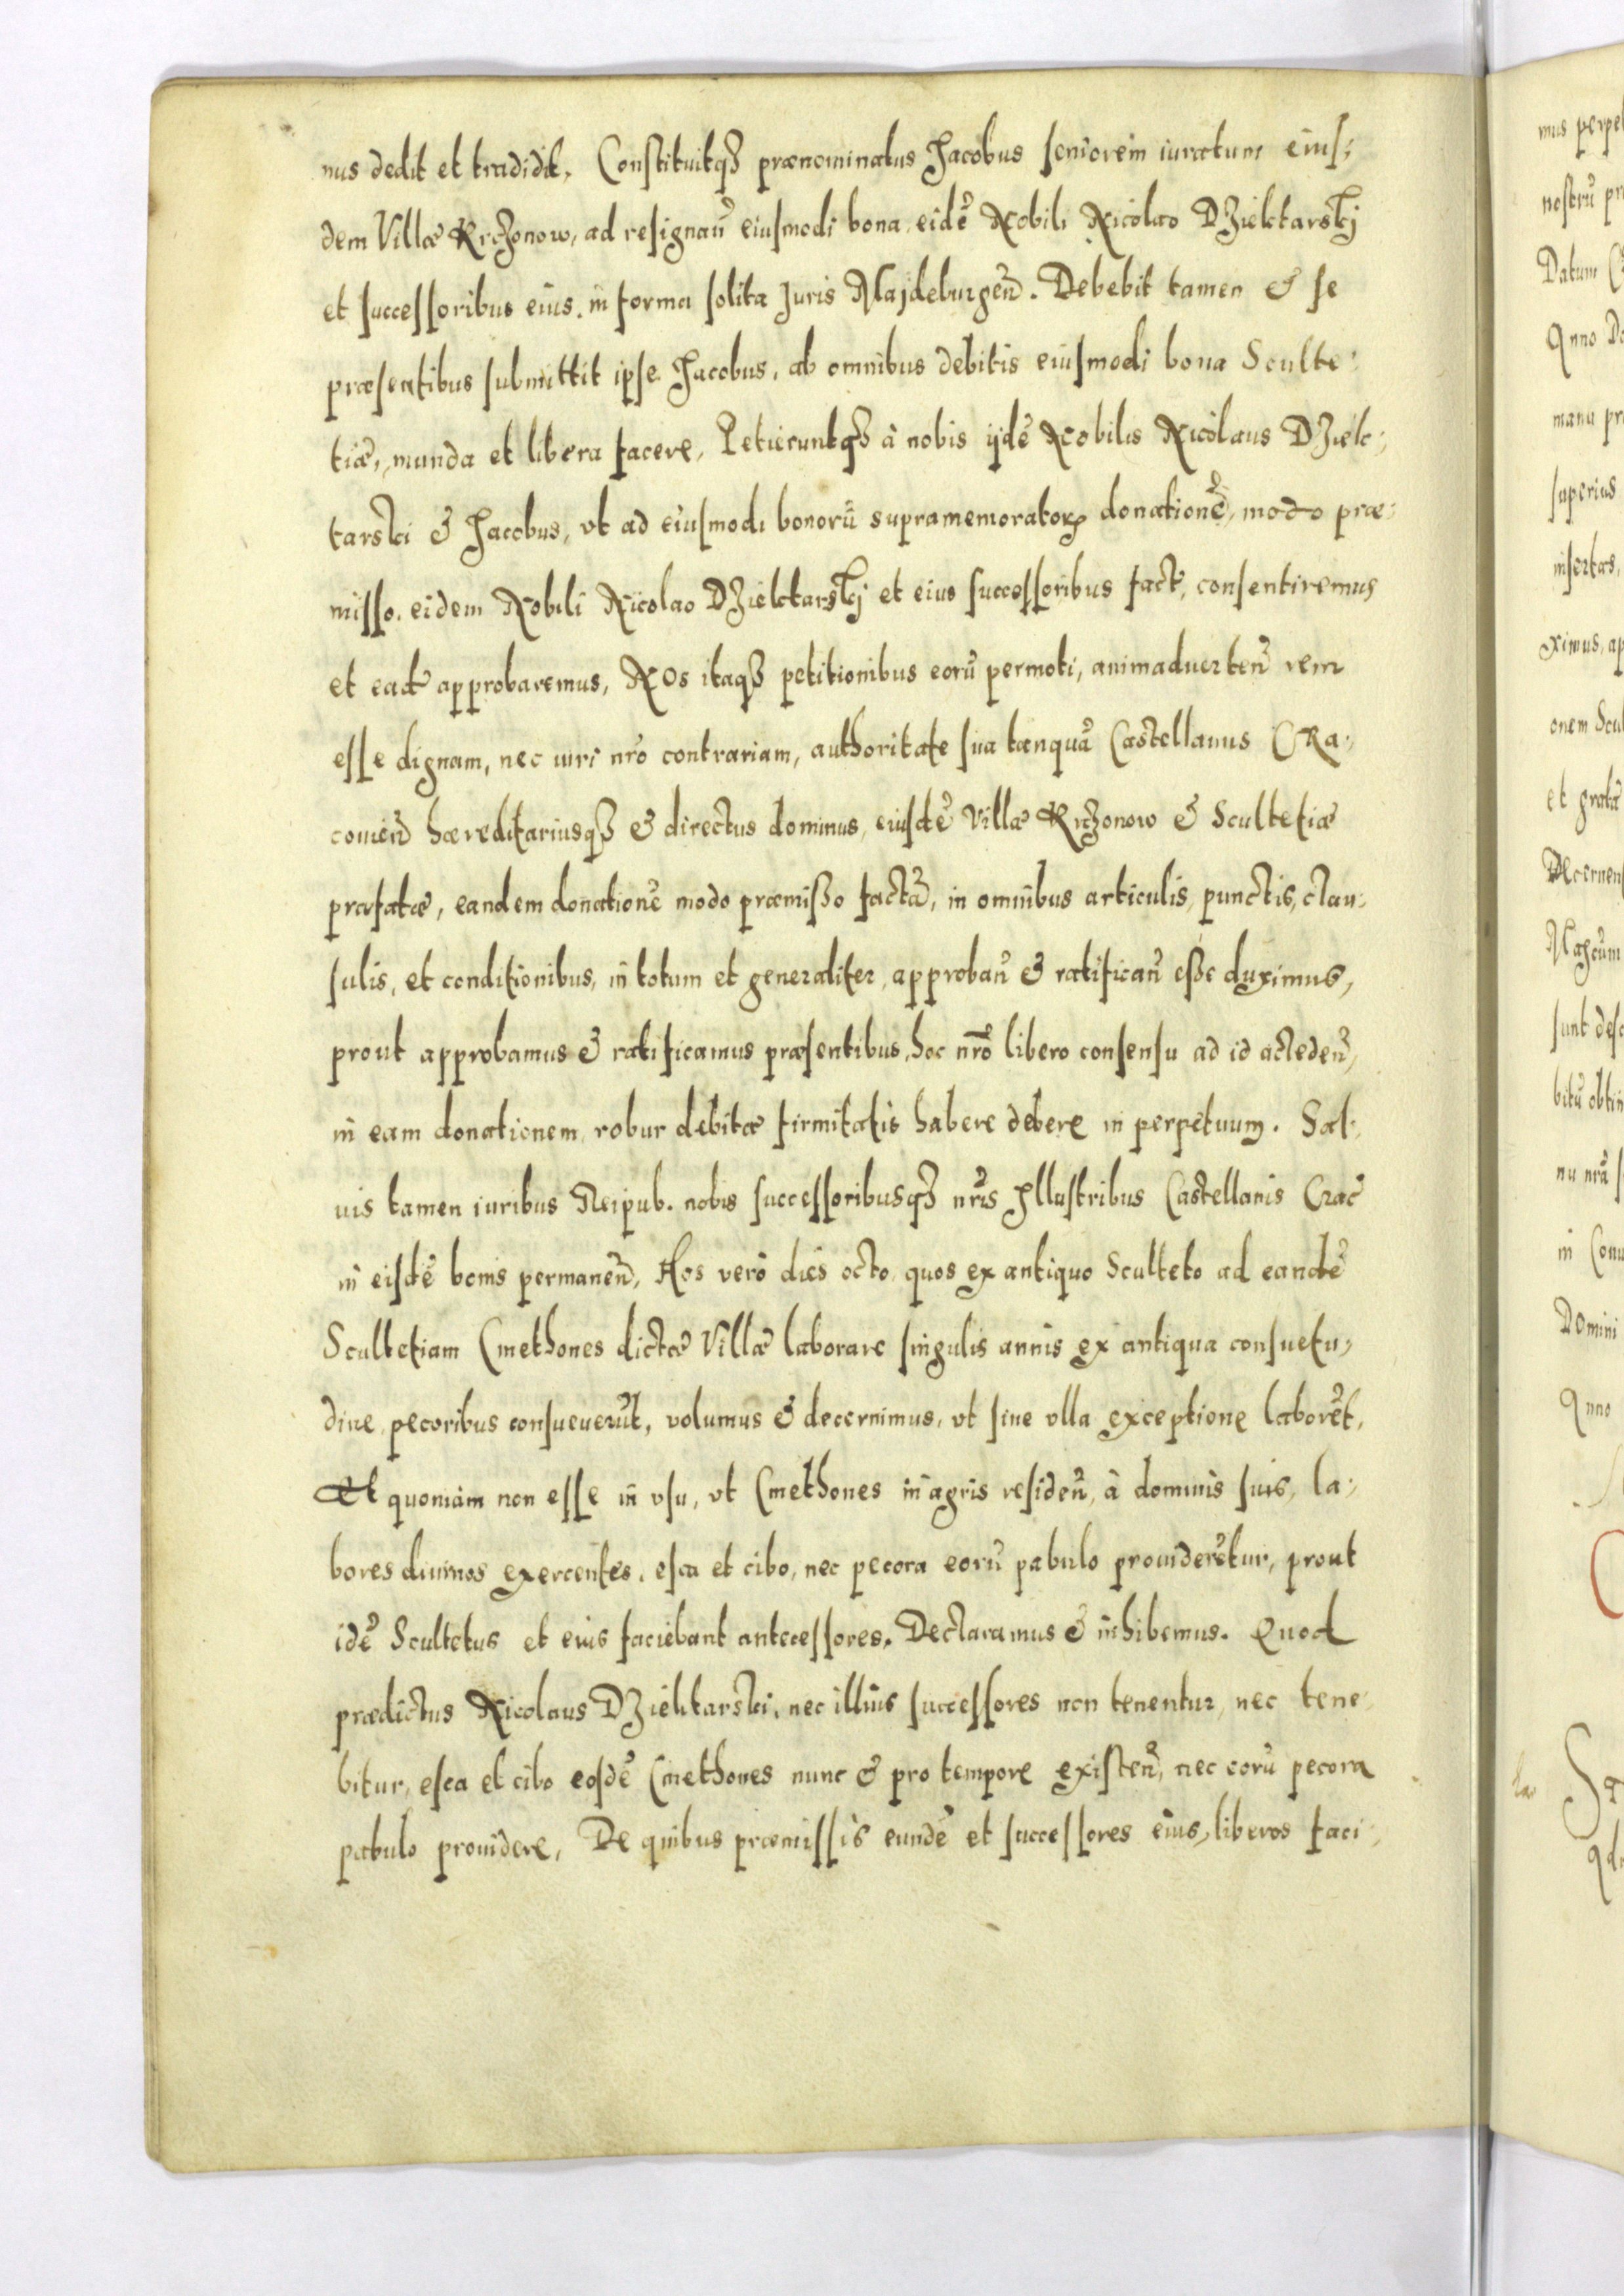 nus dedit et tradidit, Constituitqȝ prænominatus Jacobus seniorem iuratum eius:
dem Villæ Krczonow, ad resignan̄ eiusmodi bona eidē Nobili Nicolao Dzielktarskj
et successoribus eius, in forma solita Juris Majdeburgen̄. Debebit tamen & se
præsentibus submittit ipse Jacobus, ab omnibus debitis eiusmodi bona Sculte:
tiæ, munda et libera facere, Petieruntqȝ à nobis ijdē Nobilis Nicolaus Dzielc:
tarski & Jacobus, vt ad eiusmodi bonorū supramemoratoꝝ donationē, modo præ:
misso, eidem Nobili Nicolao Dzielktarskj et eius successoribus fact, consentiremus
et eād approbaremus, Nos itaqȝ petitionibus eorū permoti, animaduerten̄ rem
esse dignam, nec iuri nr̄o contrariam, authoritate sua tanquā Castellanus CRa:
couien̄ hæreditariusqȝ & directus dominus, eiusdē Villæ Krczonow & Scultetiæ
præfatæ, eandem donationē modo præmisso factā, in omnibus articulis, punctis, clau:
sulis, et conditionibus, in totum et generaliter, approban̄ & ratifican̄ esse duximus,
prout approbamus & ratificamus præsentibus, hoc nr̄o libero consensu ad id acceden̄,
in eam donationem, robur debitæ firmitatis habere debere in perpetuum. Sal:
uis tamen iuribus Reipub. nobis successoribusqȝ nr̄is Jllustribus Castellanis Crac̄
in eisdē bonis permanen̄, Hos verò dies octo, quos ex antiquo Sculteto ad eandē
Scultetiam Cmethones dictæ Villæ laborare singulis annis ex antiqua consuetu:
dine, pecoribus consueuerūt, volumus & decernimus, vt sine vlla exceptione laborēt,
Et quoniam non esse in vsu, vt Cmethones in agris residen̄, à dominis suis, la:
bores diurnos exercentes, esca et cibo, nec pecora eorū pabulo prouiderētur, prout
idē Scultetus et eius faciebant antecessores, Declaramus & inhibemus. Quod
prædictus Nicolaus Dzielktarski, nec illius successores non tenentur, nec tene:
bitur, esca et cibo eosdē Cmethones nunc & pro tempore existen̄, nec eorū pecora
pabulo prouidere, De quibus præmissis eundē et successores eius, liberos faci:
mus perpe
nostrū pr
Datum C
Anno Do
manu pr
superius
insertas,
ximus, ap
onem Scul
et grata
Decernen
Mascum
sunt desc
bitū obtin
nu nrā s
in Conu
Domini
Anno